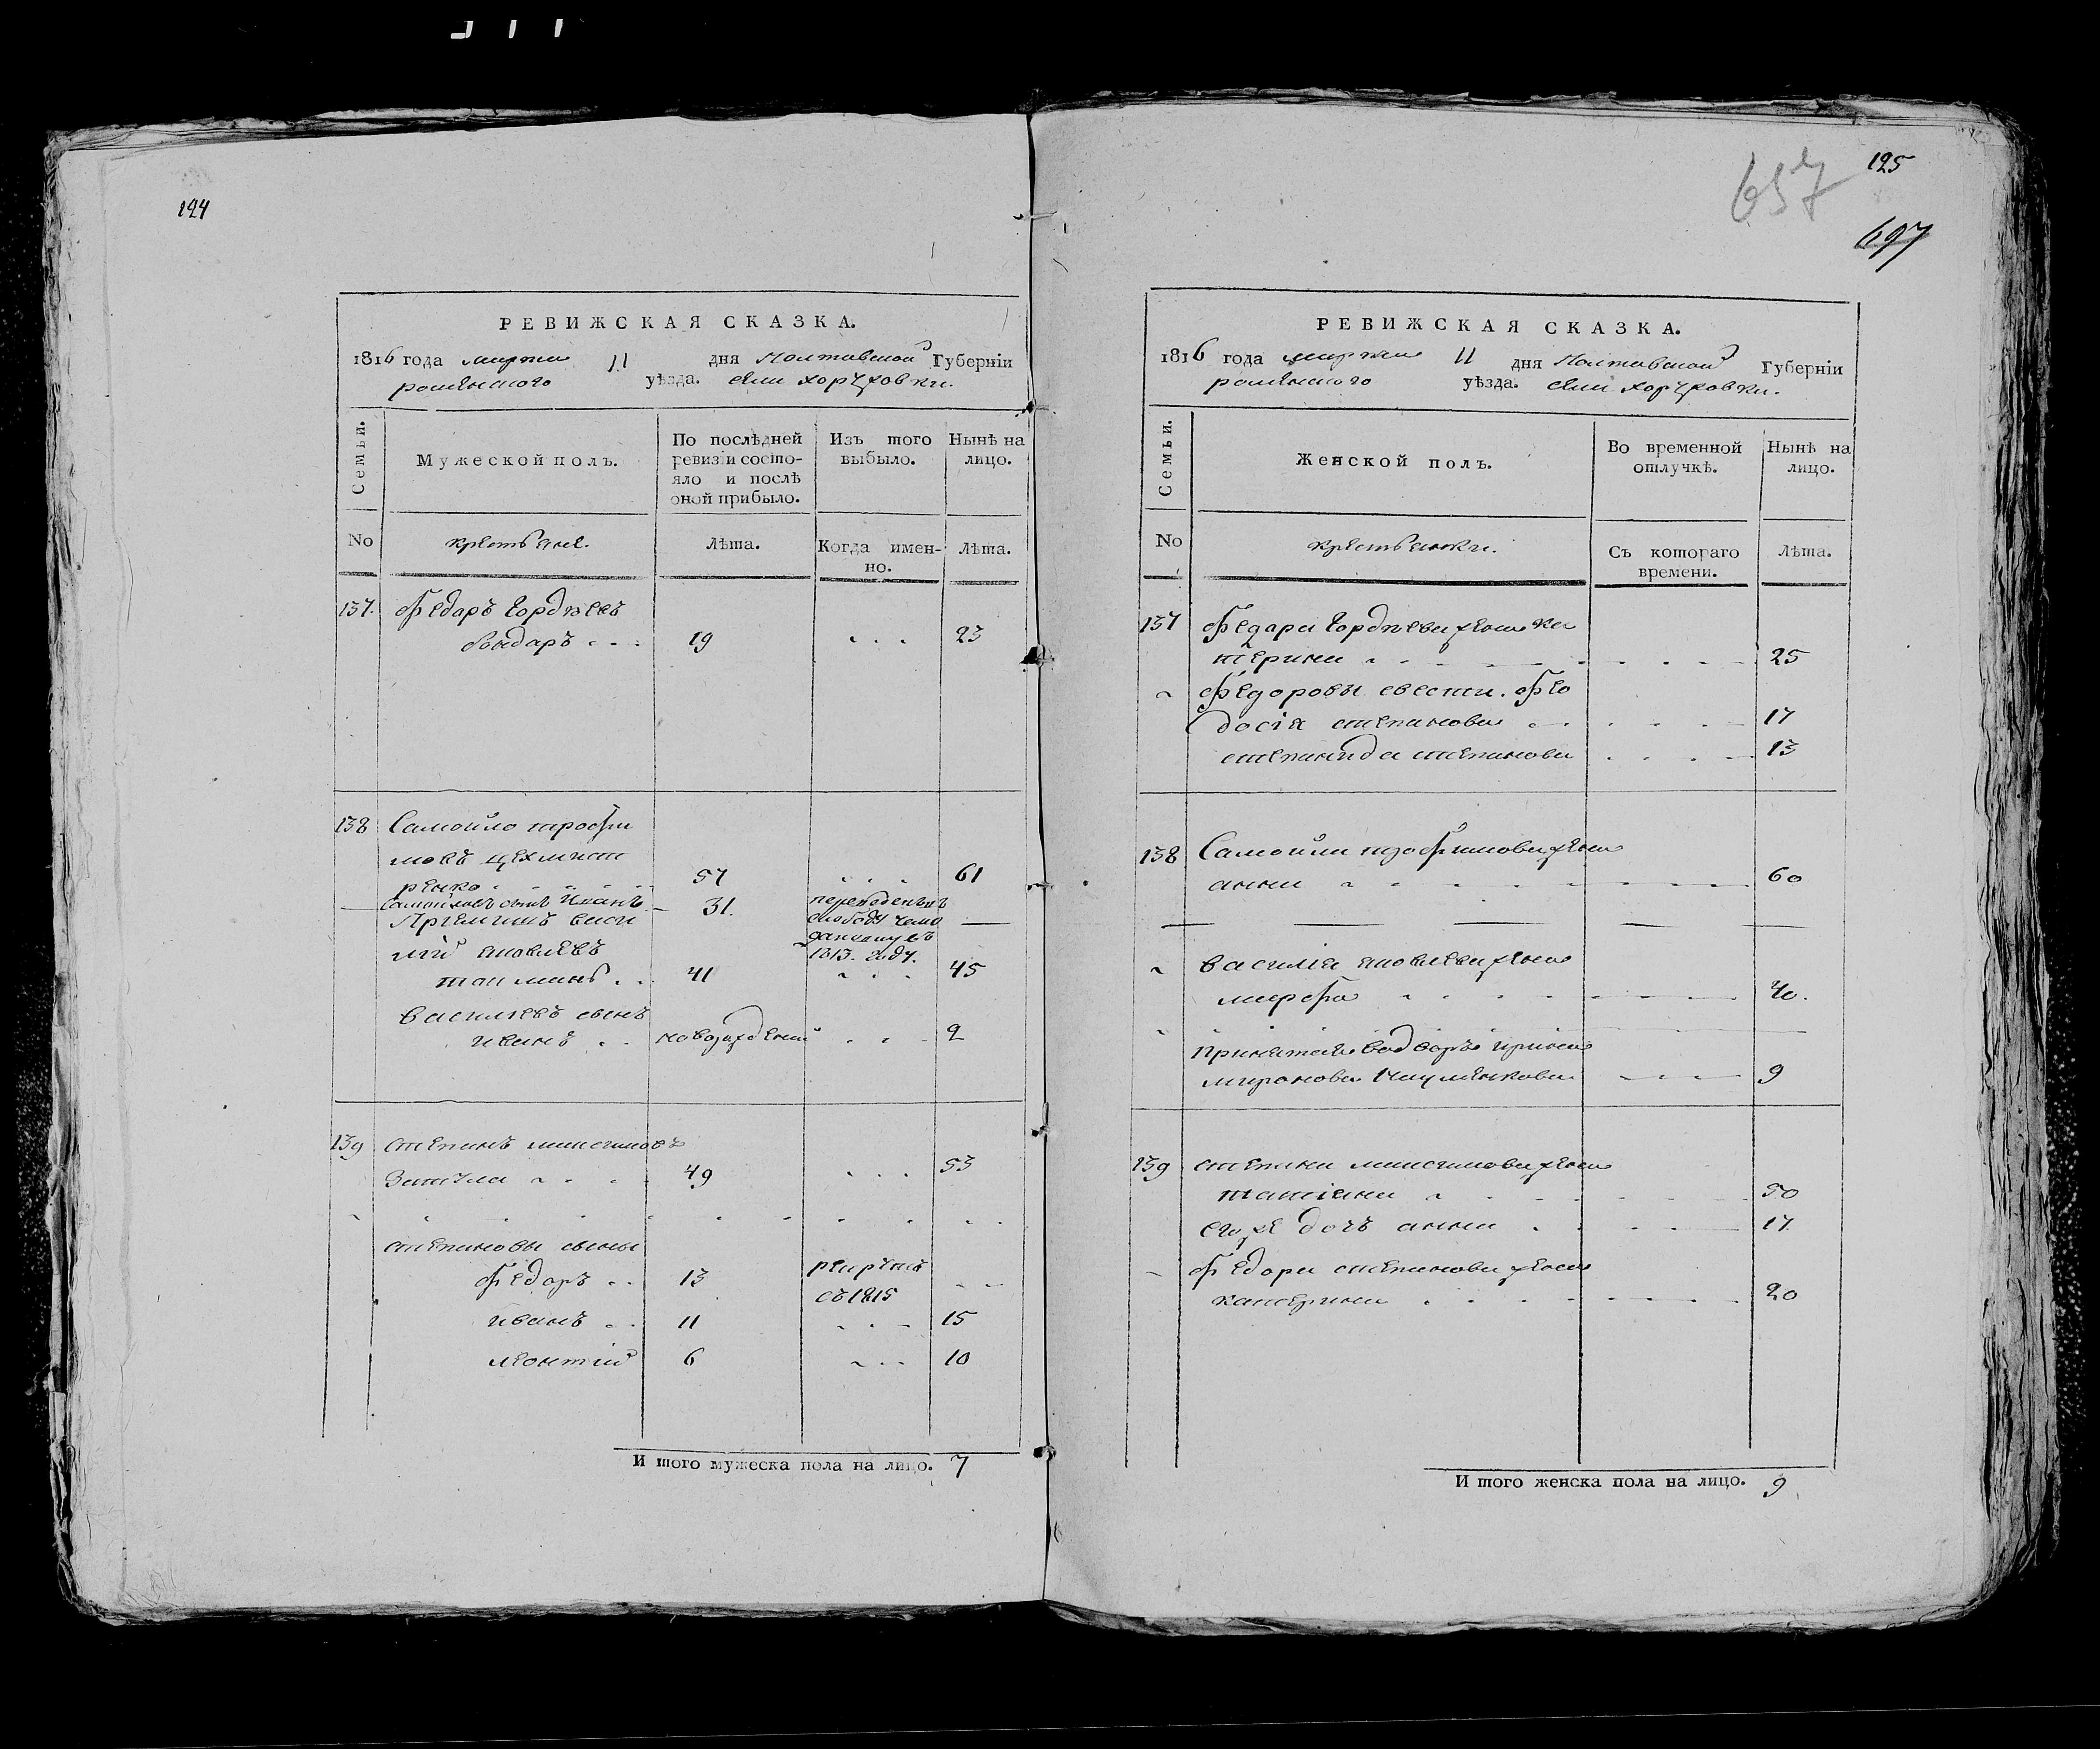 124
РЕВИЖСКАЯ СКАЗКА.
1816 года марта 11 дня Полтавской Губерніи
роменского уѣзда. села хоружовки.
Семьи.
Мужеской полъ.
По послѣдней
ревизіи состо-
яло и послѣ
оной прибыло.
Изъ того
выбыло.
Нынѣ на
лицо.
No
крестьяне.
Лѣта.
Когда имен-
но.
Лѣта.
137. Федаръ Гордѣевъ
бондаръ 19 23
138 Самойло трофи
мовъ цехмист
ренко 57 61
Самойловъ сынъ Иванъ 31. переведенъ въ
Приемишъ васи слободу
лий яковлевъ 1813. году.
41 45
василевъ сынъ
иванъ новорожденый 2
139 степанъ максимовъ
49 53
степановы сыны
федоръ 13 рекрутъ
съ 1815
иванъ 11 15
леонтий 6 10
И того мужеска пола на лицо. 7
125
657
697
РЕВИЖСКАЯ СКАЗКА.
1816 года марта 11 дня Полтавской Губерніи
роменского уѣзда. села хоружовки.
Семьи.
Женской полъ.
Во временной
отлучкѣ.
Нынѣ на
лицо.
No
крестьянки.
Съ котораго
времени.
Лѣта.
137 Федара Гордѣева жена ка
терина 25
Федоровы сестри. Фео
досія степанова 17
степанида степанова 13
138 Самойла трофимова жена
анна 60
василія яковлева жена
марфа 40.
принятая водворъ ирина
миронова Науменкова 9
139 степана максимова жена
татіяна 50
егоже дочъ анна 17
федора степанова жена
катерина 20
И того женска пола на лицо. 9